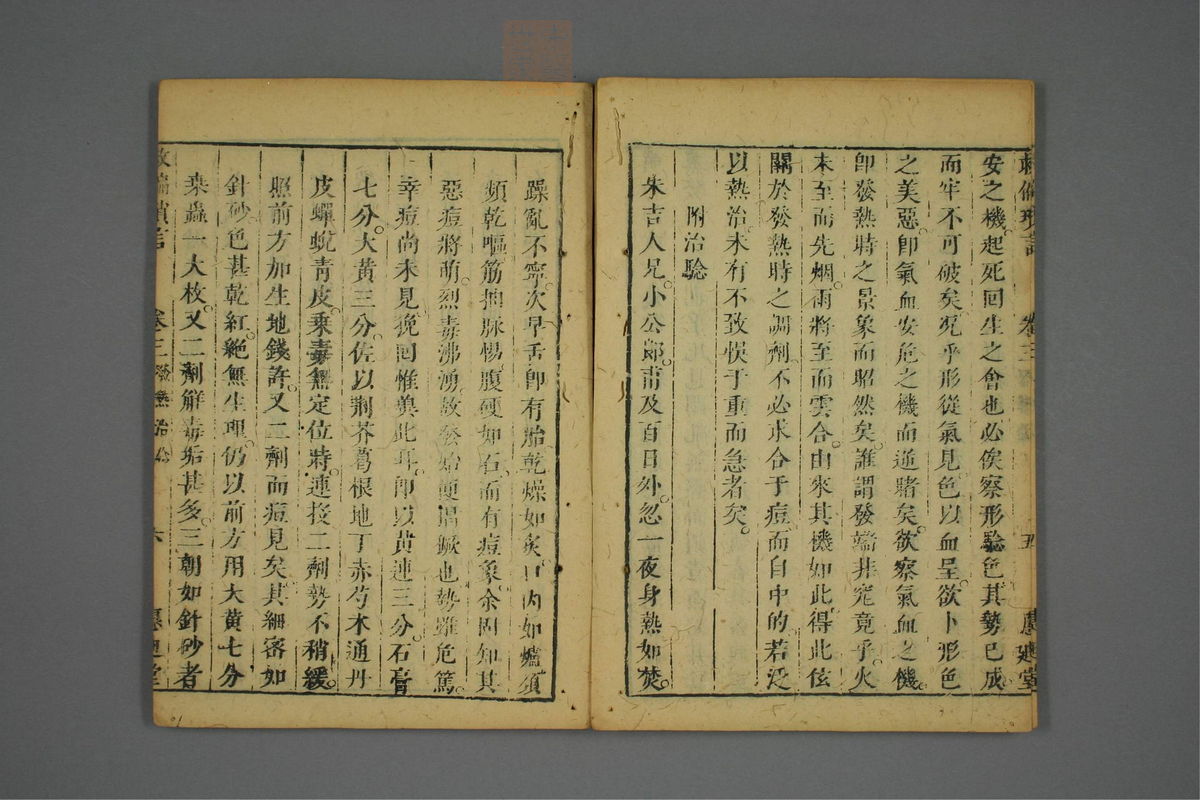 安之機起死回生之會也必俟察形驗色其勢已成
而牢不可破矣況乎形從氣見色以血呈欲卜形色
之美惡卽氣血安危之機而逆賭矣欲察氣血之機
卽發熱時之景象而昭然矣誰謂發端非究竟乎火
未至而先烟雨將至而雲合由來其機如此得此弦
關於發熱時之調劑不必求合于痘而自中的若漫
以熱治未有不致悞于重而急者矣
附治驗
朱吉人兄小公郎甫及百日外忽一夜身熱如焚
躁亂不寧次早舌卽有胎乾燥如炙口內如爐須
頻乾嘔筋抽脉惕腹硬如石而有痘象余固知其
惡痘將萌烈毒沸湧故發始便猖獗也勢雖危篤
幸痘尚未見挽回惟義此耳卽以黃連三分石膏
七分大黃三分佐以荆芥葛根地丁赤芍木通丹
皮蟬蛻靑皮乘毒無定位時連投二劑勢不稍緩
照前方加生地錢許又二劑而痘見矣其細密如
針砂色甚乾紅絕無生理仍以前方用大黃七分
桒蟲一大枚又二劑解毒垢甚多三朝如針砂者
卷三
五
卷三
六